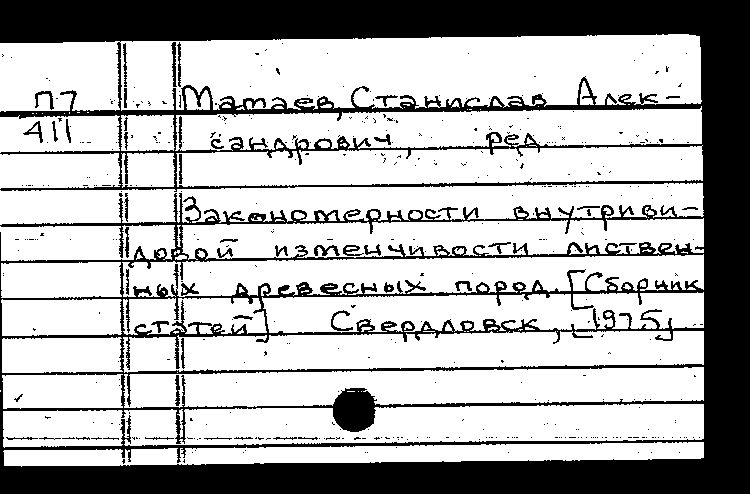 П7
411
Матаев, Станислав Алек-
сандрович, ред.
Закономерности внутриви-
довой изменчивости листвен-
ных древесных пород. [Сборник
статей]. Свердловск, [1975]